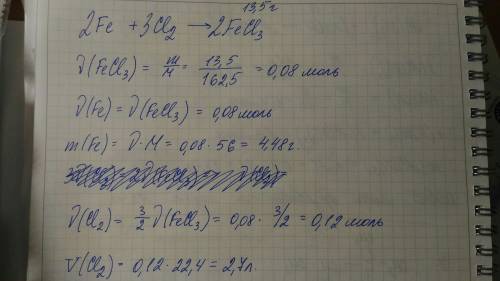 13,5г
2Fe + 3Cl₂ → 2FeCl₃
ν(FeCl₃) = m/M = 13,5/162,5 = 0,08 моль
ν(Fe) = ν(FeCl₃) = 0,08 моль
m(Fe) = ν·M = 0,08·56 = 4,48г.
ν(Cl₂) = 3/2 ν(FeCl₃) = 0,08 · 3/2 = 0,12 моль
V(Cl₂) = 0,12·22,4 = 2,7л.